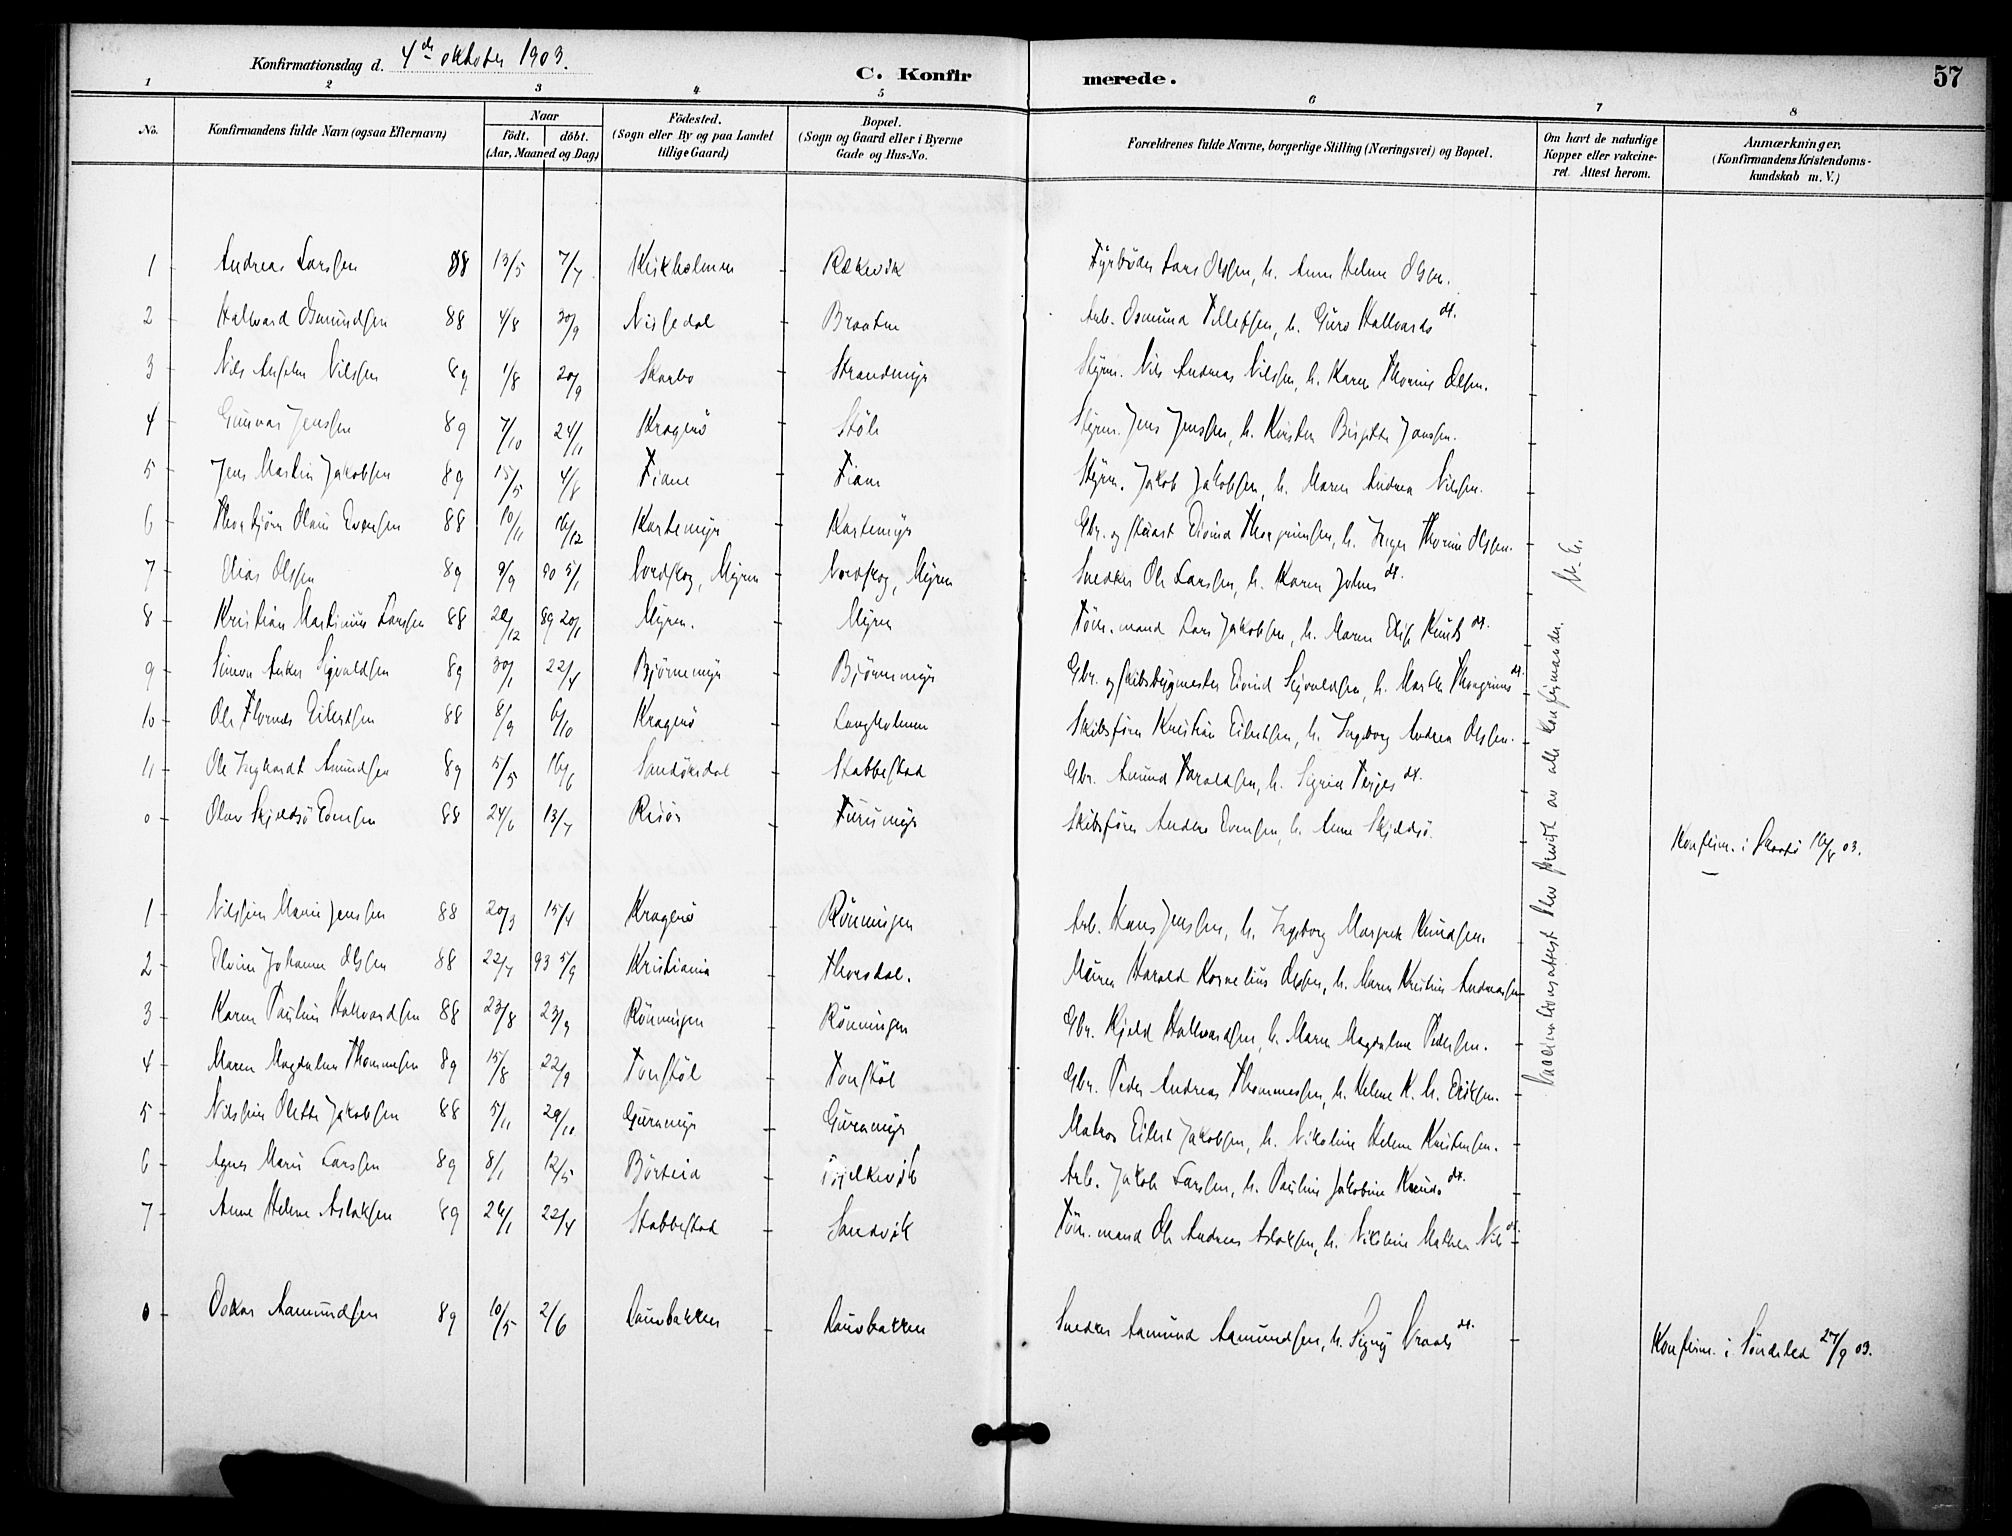 Konfirmationsdag d. 4de oktober 1903.
C. Konfirmerede.
57
1 2 3 4 5 6 7 8
No.
Konfirmandens fulde Navn (ogsaa Efternavn)
Naar
födt. döbt.
(Aar, Maaned og Dag)
Födested.
(Sogn eller By og paa Landet
tillige Gaard)
Bopæl.
(Sogn og Gaard eller i Byerne
Gade og Hus-No.
Forældrenes fulde Navne, borgerlige Stilling (Næringsvei) og Bopæl.
Om havt de naturlige
Kopper eller vakcine-
ret. Attest herom.
Anmærkninger.
(Konfirmandens Kristendoms-
kundskab m. V.)
1 Andreas Larssen 88 13/5 7/7 Kirkholmen Rækevik Fyrböder Lars Olssen, h. Anne Helene Olsen.
2 Halvard Osmundsen 88 4/8 30/9 Nissedal Braaten Arb. Osmund Tellefsen, h. Guro Hallvards dt.
3 Nils Anselm Nilssen 89 1/8 20/9 Skarbo Strandmyr Styrm. Nils Andreas Nilssen, h. Karen Thorine Olsen.
4 Gunvar Jenssen 89 7/10 24/11 Kragerö Stöle Styrm. Jens Jenssen, h. Kirsten Birgitte Jonssen.
5 Jens Martin Jakobsen 89 15/5 4/8 Fiane Fiane Styrm. Jakob Jakobsen, h. Maren Andrea Nilssen.
6 Thorbjörn Olaus Evensen 88 10/11 16/12 Kartemyr Kartemyr Gbr. og stuart Eivind Thorgrimsen, h. Inger Thorine Olssen.
7 Olias Olssen 89 9/9 90 5/1 Nordskog, Myren Nordskog, Myren Snedker Ole Larssen, h. Karen Johns dt.
8 Kristian Martinius Larssen 88 22/12 89 20/1 Myren. Myren Töm. mand Lars Jakobsen, h. Maren Elise Knuts dt.
9 Simon Anker Sigvaldsen 89 30/1 22/4 Björnemyr Björnemyr Gbr. og skibsbygmester Eivind Sigvaldsen, h. Marthe Thorgrims dt.
10 Ole Thomas Eilertsen 88 8/9 6/10 Kragerö Langholmen Skibsförer Kristian Eilertsen, h. Ingeborg Andrea Olssen.
11 Ole Inghardt Amundsen 89 5/5 16/6 Sandökedal Stabbestad Gbr. Amund Taraldsen, h. Sigrid Terjes dt.
0 Olav Skjeldsö Evensen 88 24/6 13/7 Risör Furumyr Skibsförer Anders Evensen, h. Anne Skjeldsö.
Konfirm. i Skaatö 16/8 03.
1 Nilsine Marie Jenssen 88 20/3 15/4 Kragerö Rönningen Arb. Hans Jenssen, h. Ingeborg Margrete Knudsen.
2 Elvine Johanne Olssen 88 22/7 93 5/9 Kristiania Thorsdal. Murer Harald Kornelius Olssen, h. Maren Kristine Andreassen
3 Karen Pauline Hallvardsen 88 23/8 23/9 Rönningen Rönningen Gbr. Kjeld Hallvardsen, h. Maren Magdalene Pedersen.
4 Maren Magdalene Thommessen 89 15/8 22/9 Tonstöl Tonstöl Gbr. Peder Andreas Thommessen, h. Helene K. M. Eriksen.
5 Nilsine Olette Jakobsen 88 5/11 29/10 Guramyr Guramyr Matros Eilert Jakobsen, h. Nikoline Helene Kristensen.
6 Agnes Marie Larssen 89 8/1 12/5 Börteid Arb. Jakob Larssen, h. Pauline Jakobine Knuds dt.
7 Anne Helene Aslaksen 89 26/1 22/4 Stabbestad Sandvik Töm. mand Ole Andreas Aslaksen, h. Nikoline Mathea Nils dt.
0 Oskar Aamundsen 89 10/5 2/6 Laurbakken Laurbakken Snedker Aamund Aamundsen, h. Signy Vraals dt.
Konfirm. i Söndeled 27/9 03.
Vaccinationsattest blev forevist av alle konfirmander.